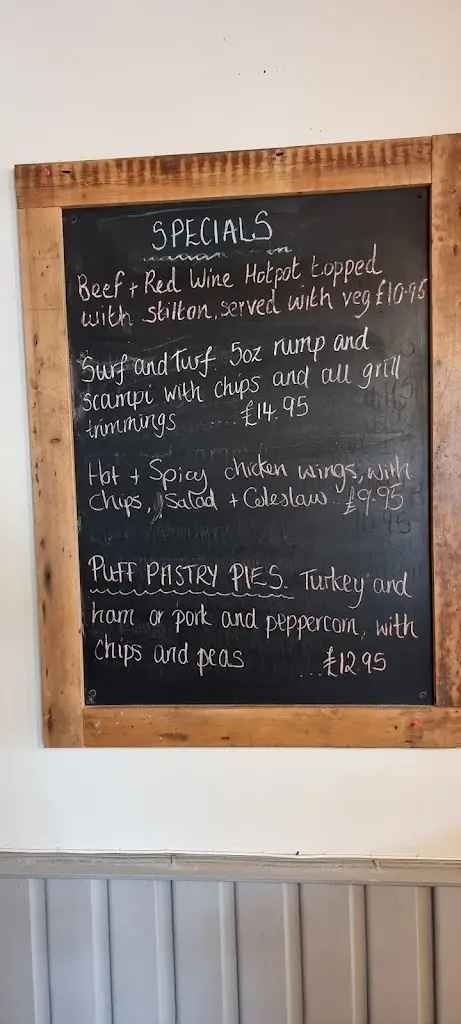 SPECIALS
Beef + Red Wine Hotpot topped
with stilton, served with veg £10.95
Surf and Turf. 5oz rump and
scampi with chips and all grill
trimmings ... £14.95
Hot + Spicy chicken wings, with
Chips, Salad + Coleslaw .. £9.95
PUFF PASTRY PIES. Turkey and
ham or pork and peppercorn, with
Chips and peas ... £12.95